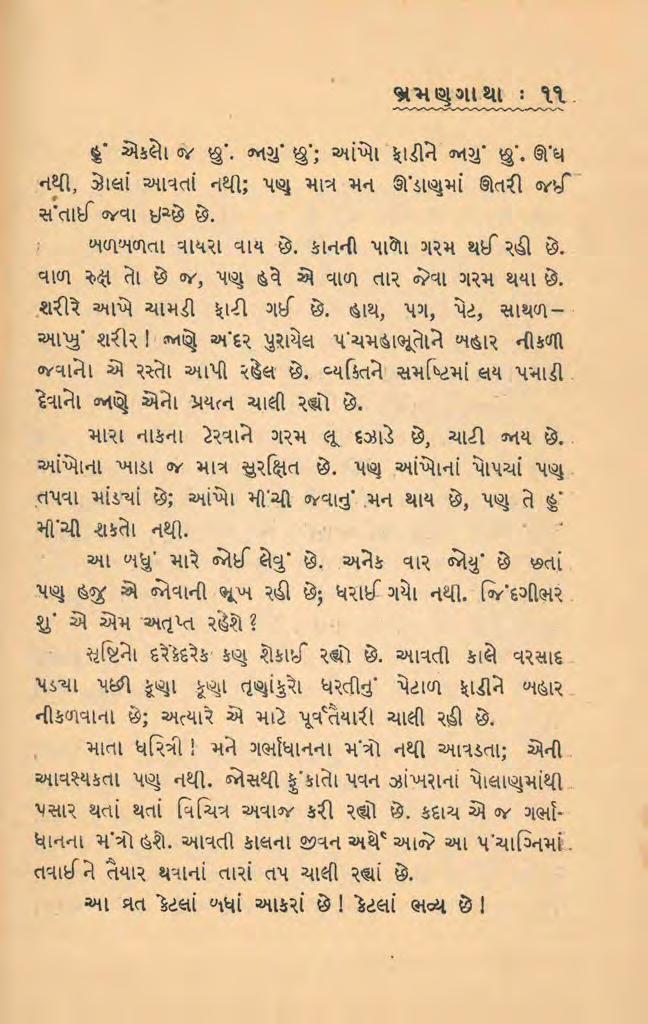 ભ્રમણગાથા : ૧૧
હું એકલો જ છું. જાગું છું; આંખો ફાડીને જાગું છું. ઊંઘ
નથી, ઝોલાં આવતાં નથી; પણ માત્ર મન ઊંડાણમાં ઊતરી જઈ
સંતાઈ જવા ઇચ્છે છે.
બળબળતા વાયરા વાય છે. કાનની પાળો ગરમ થઈ રહી છે.
વાળ રુક્ષ તો છે જ, પણ હવે એ વાળ તાર જેવા ગરમ થયા છે.
શરીરે આખે ચામડી ફાટી ગઈ છે. હાથ, પગ, પેટ, સાથળ–
આખું શરીર! જાણે અંદર પુરાયેલ પંચમહાભૂતોને બહાર નીકળી
જવાનો એ રસ્તો આપી રહેલ છે. વ્યક્તિને સમષ્ટિમાં લય પમાડી
દેવાનો જાણે એનો પ્રયત્ન ચાલી રહ્યો છે.
મારા નાકના ટેરવાને ગરમ લૂ દઝાડે છે, ચાટી જાય છે.
આંખોના ખાડા જ માત્ર સુરક્ષિત છે. પણ આંખોનાં પોપચાં પણ
તપવા માંડ્યાં છે; આંખો મીંચી જવાનું મન થાય છે, પણ તે હું
મીંચી શકતો નથી.
આ બધું મારે જોઈ લેવું છે. અનેક વાર જોયું છે છતાં
પણ હજુ એ જોવાની ભૂખ રહી છે; ધરાઈ ગયો નથી. જિંદગીભર
શું એ એમ અતૃપ્ત રહેશે?
સૃષ્ટિનો દરેકેદરેક કણ શેકાઈ રહ્યો છે. આવતી કાલે વરસાદ
પડ્યા પછી કૂણા કૂણા તૃણાંકુરો ધરતીનું પેટાળ ફાડીને બહાર
નીકળવાના છે; અત્યારે એ માટે પૂર્વતૈયારી ચાલી રહી છે.
માતા ધરિત્રી! મને ગર્ભાધાનના મંત્રો નથી આવડતા; એની
આવશ્યકતા પણ નથી. જોસથી ફુંકાતો પવન ઝાંખરાનાં પોલાણમાંથી
પસાર થતાં થતાં વિચિત્ર અવાજ કરી રહ્યો છે. કદાચ એ જ ગર્ભા-
ધાનના મંત્રો હશે. આવતી કાલના જીવન અર્થે આજે આ પંચાગ્નિમાં
તવાઈ ને તૈયાર થવાનાં તારાં તપ ચાલી રહ્યાં છે.
આ વ્રત કેટલાં બધાં આકરાં છે! કેટલાં ભવ્ય છે!